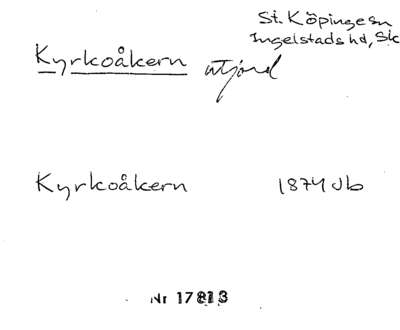 St. Köpinge sn
Ingelstads hd, Sk
Kyrkoåkern utjord
Kyrkoåkern 1874 Jb
Nr 17813